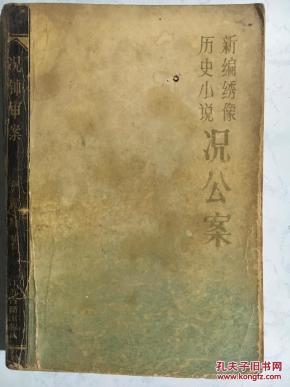 新编绣像
历史小说
况公案
况钟审案
孔夫子旧书网
www.kongfz.com